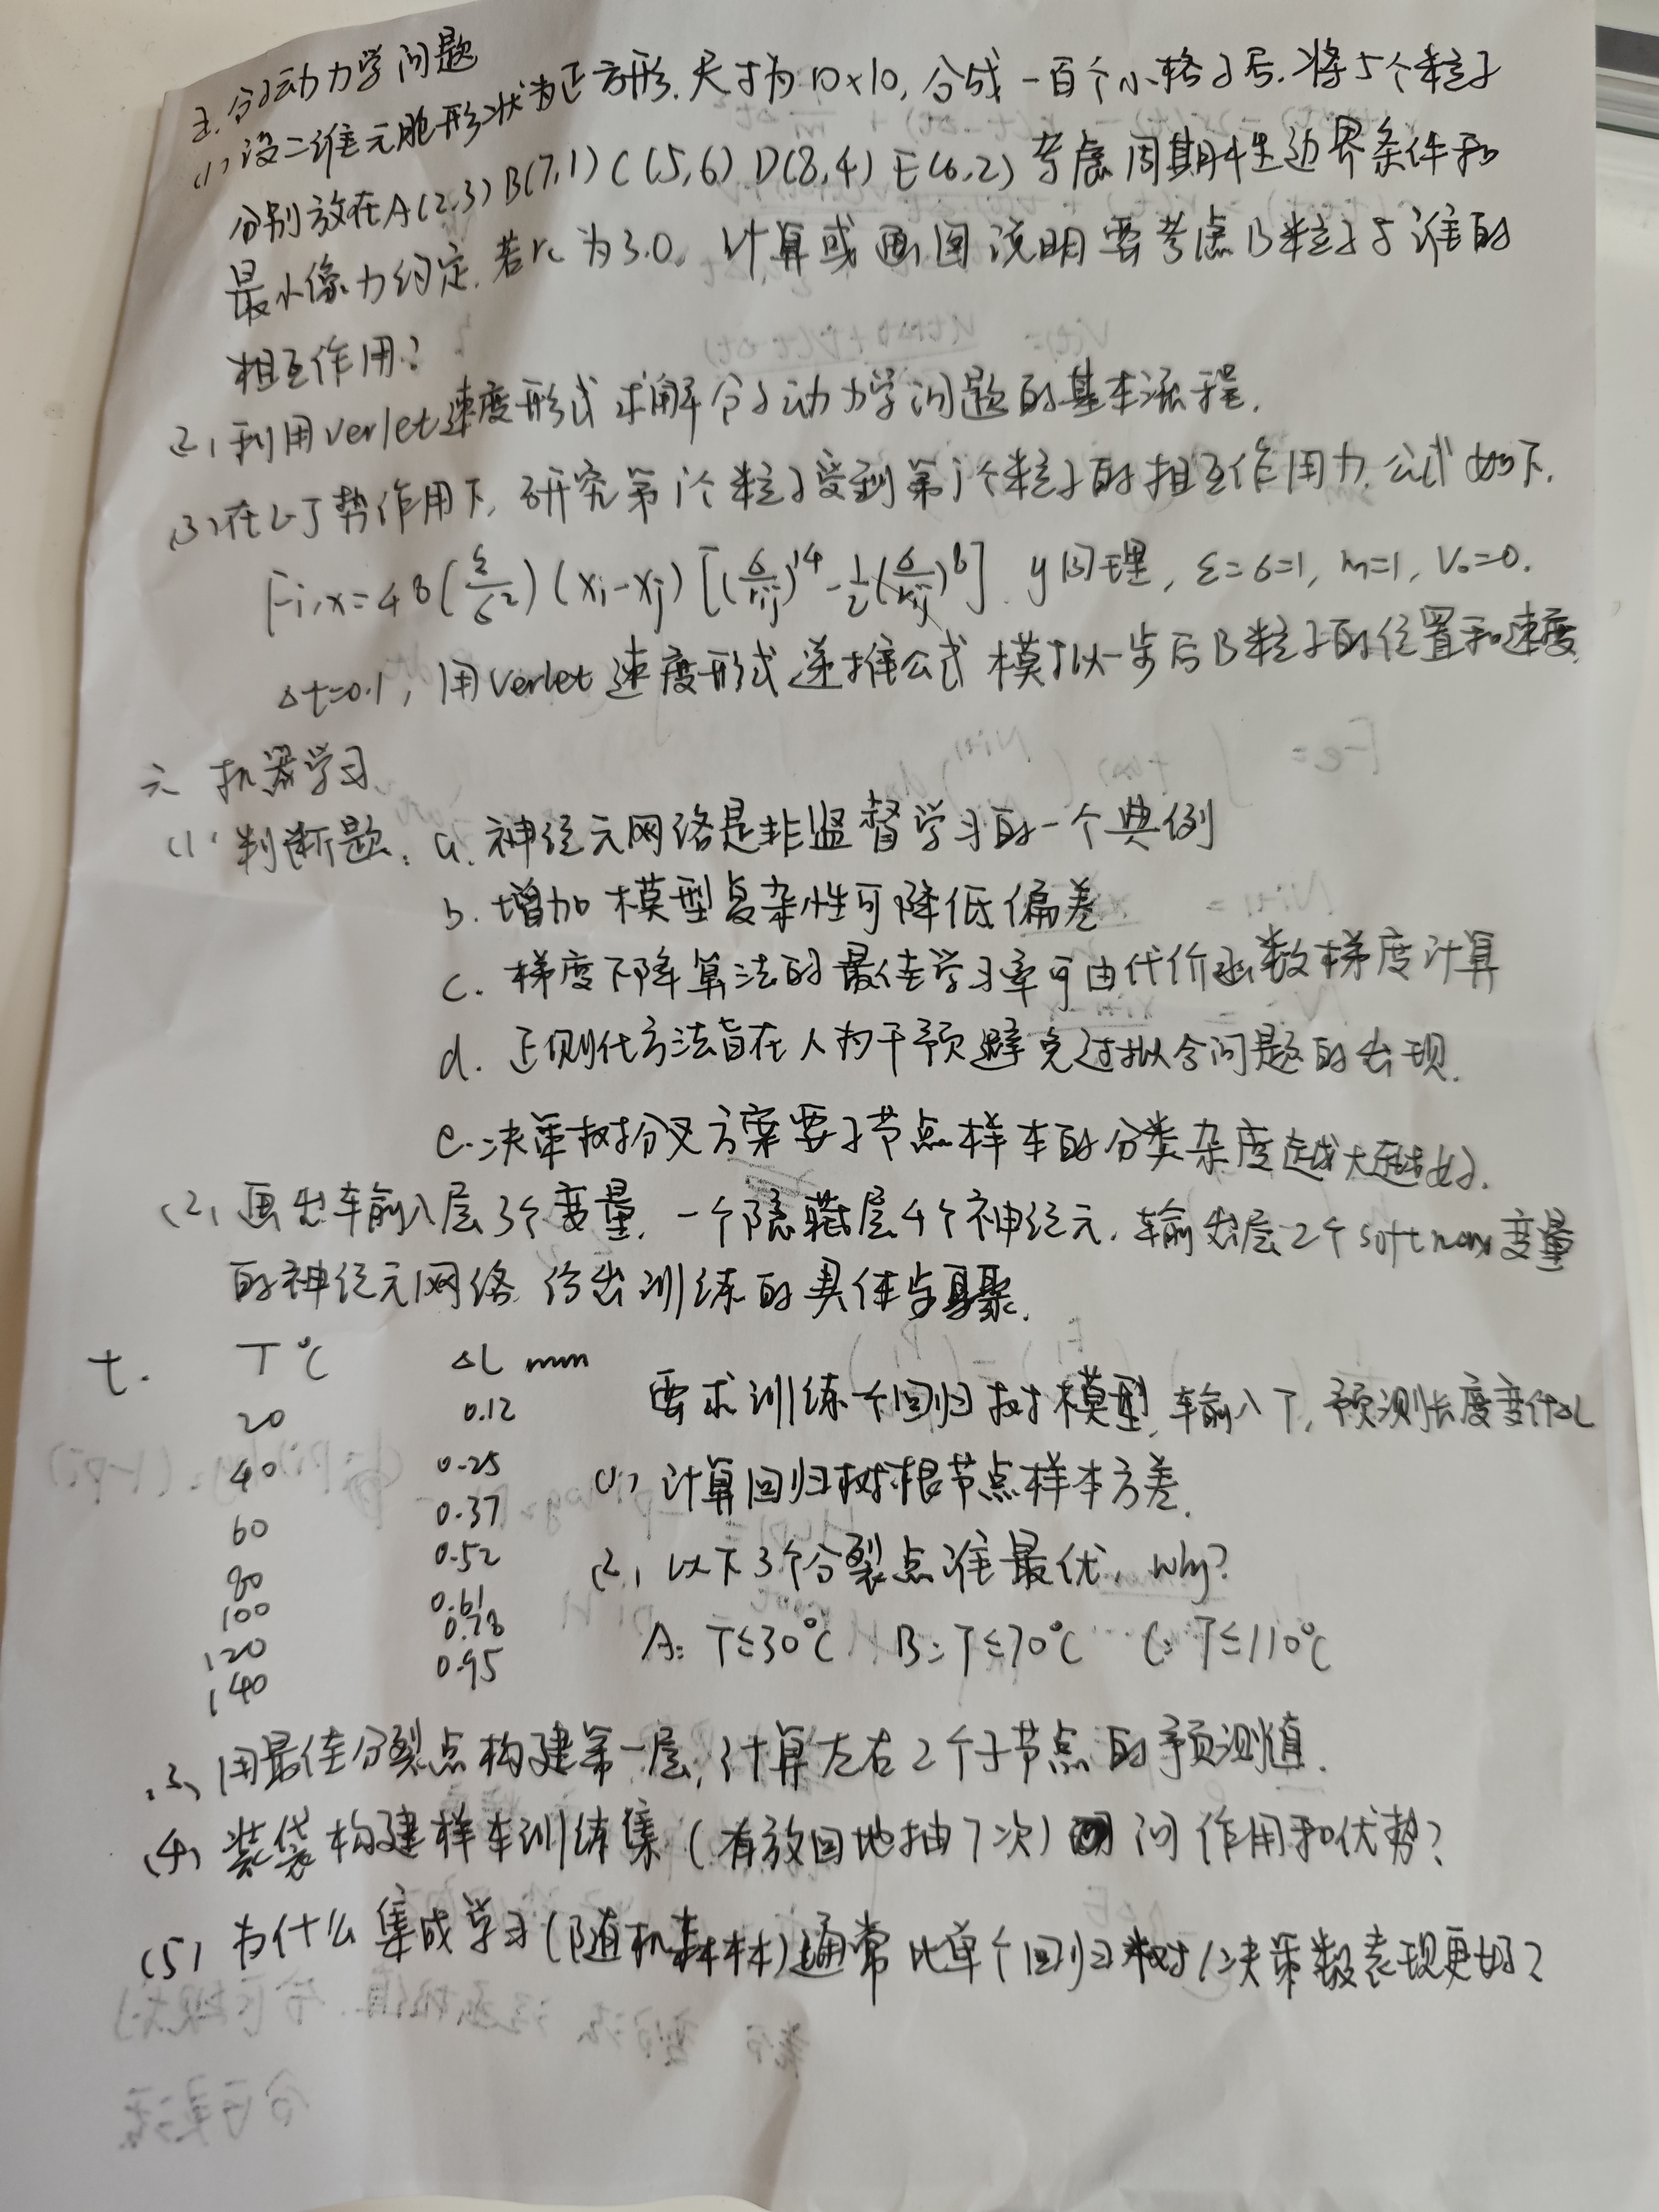 五.分子动力学问题
(1)设二维元胞形状为正方形.尺寸为10×10,分成一百个小格子后.将5个粒子
分别放在A(2,3) B(7,1) C(5,6) D(8,4) E(6,2) 考虑周期性边界条件和
最小像力约定.若rc为3.0. 计算或画图说明要考虑B粒子与谁的
相互作用?
(2)利用verlet速度形式求解分子动力学问题的基本流程.
(3)在L-J势作用下,研究第i个粒子受到第j个粒子的相互作用力.公式如下.
Fi,x=48(ε/σ²)(xi-xj)[(σ/rij)^14-1/2(σ/rij)^8]. y同理, ε=σ=1, m=1, V₀=0.
Δt=0.1, 用verlet速度形式递推公式模拟一步后B粒子的位置和速度.
六 机器学习
(1)判断题: a.神经元网络是非监督学习的一个典例
b.增加模型复杂性可降低偏差
c.梯度下降算法的最佳学习率可由代价函数梯度计算
d.正则化方法旨在人为干预避免过拟合问题的出现.
e.决策树分叉方案要子节点样本的分类杂度越大越好.
(2)画出输入层3个变量,一个隐藏层4个神经元,输出层2个softmax变量
的神经元网络.给出训练的具体步骤.
七. T℃ ΔL mm
20 0.12
40 0.25
60 0.37
80 0.52
100 0.61
120 0.78
140 0.95
要求训练一个回归树模型,输入T,预测长度变化ΔL
(1)计算回归树根节点样本方差.
(2)以下3个分裂点谁最优,why?
A: T≤30℃ B: T≤70℃ C: T≤110℃
(3)用最佳分裂点构建第一层,计算左右2个子节点的预测值.
(4)装袋构建样本训练集(有放回地抽7次) 问作用和优势?
(5)为什么集成学习(随机森林)通常比单个回归树/决策数表现更好?